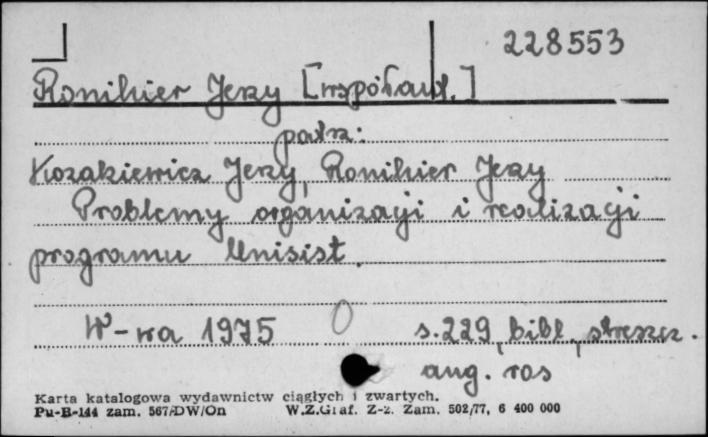 228553
Ronikier Jerzy [współaut.]
patrz:
Kozakiewicz Jerzy, Ronikier Jerzy
Problemy organizacji i realizacji
programu Unisist.
W-wa 1975 s. 229, bibl., streszcz.
ang. ros
Karta katalogowa wydawnictw ciągłych i zwartych.
Pu-B-144 zam. 567/DW/On W.Z.Graf. Z-z. Zam. 502/77, 6 400 000